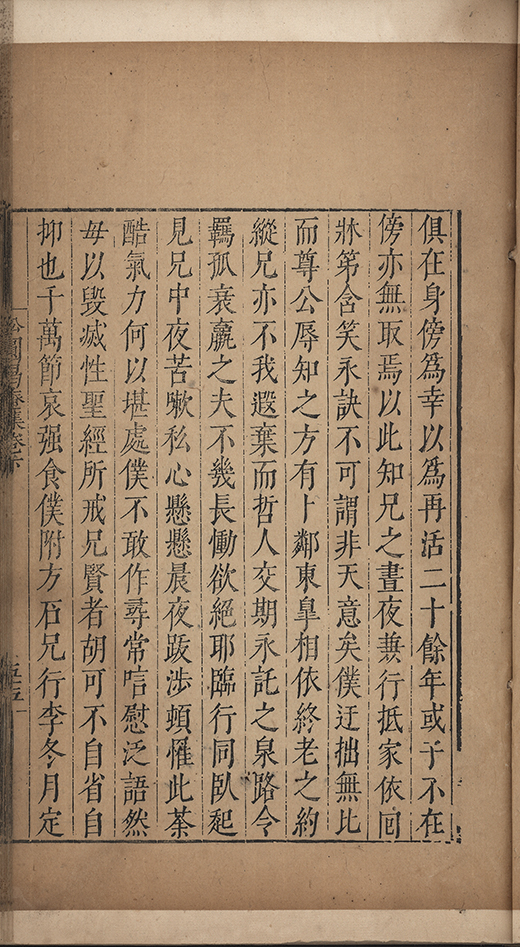 俱在身傍爲幸以爲再活二十餘年或于不在
傍亦無取焉以此知兄之晝夜兼行抵家依回
牀笫含笑永訣不可謂非天意矣僕迂拙無比
而尊公辱知之方有卜鄰東臯相依終老之約
縱兄亦不我遐棄而哲人交期永託之泉路令
羈孤衰羸之夫不幾長慟欲絕耶臨行同臥起
見兄中夜苦嗽私心懸懸晨夜跋涉頓罹此荼
酷氣力何以堪處僕不敢作尋常唁慰泛語然
毋以毀滅性聖經所戒兄賢者胡可不自省自
抑也千萬節哀强食僕附方石兄行李冬月定